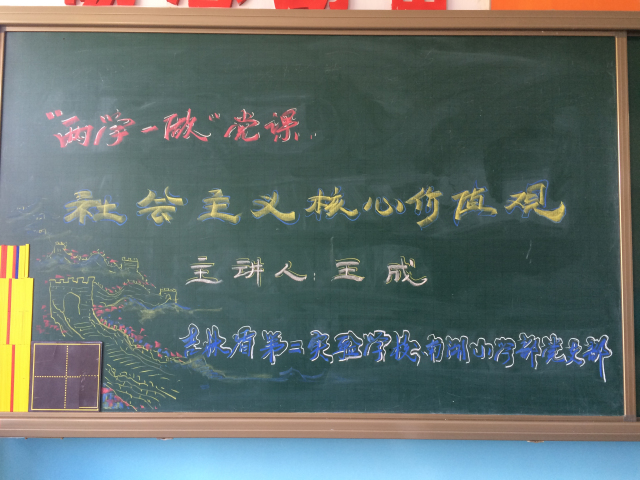 “两学一做”党课
社会主义核心价值观
主讲人:王成
吉林省第二实验学校南湖小学部党支部